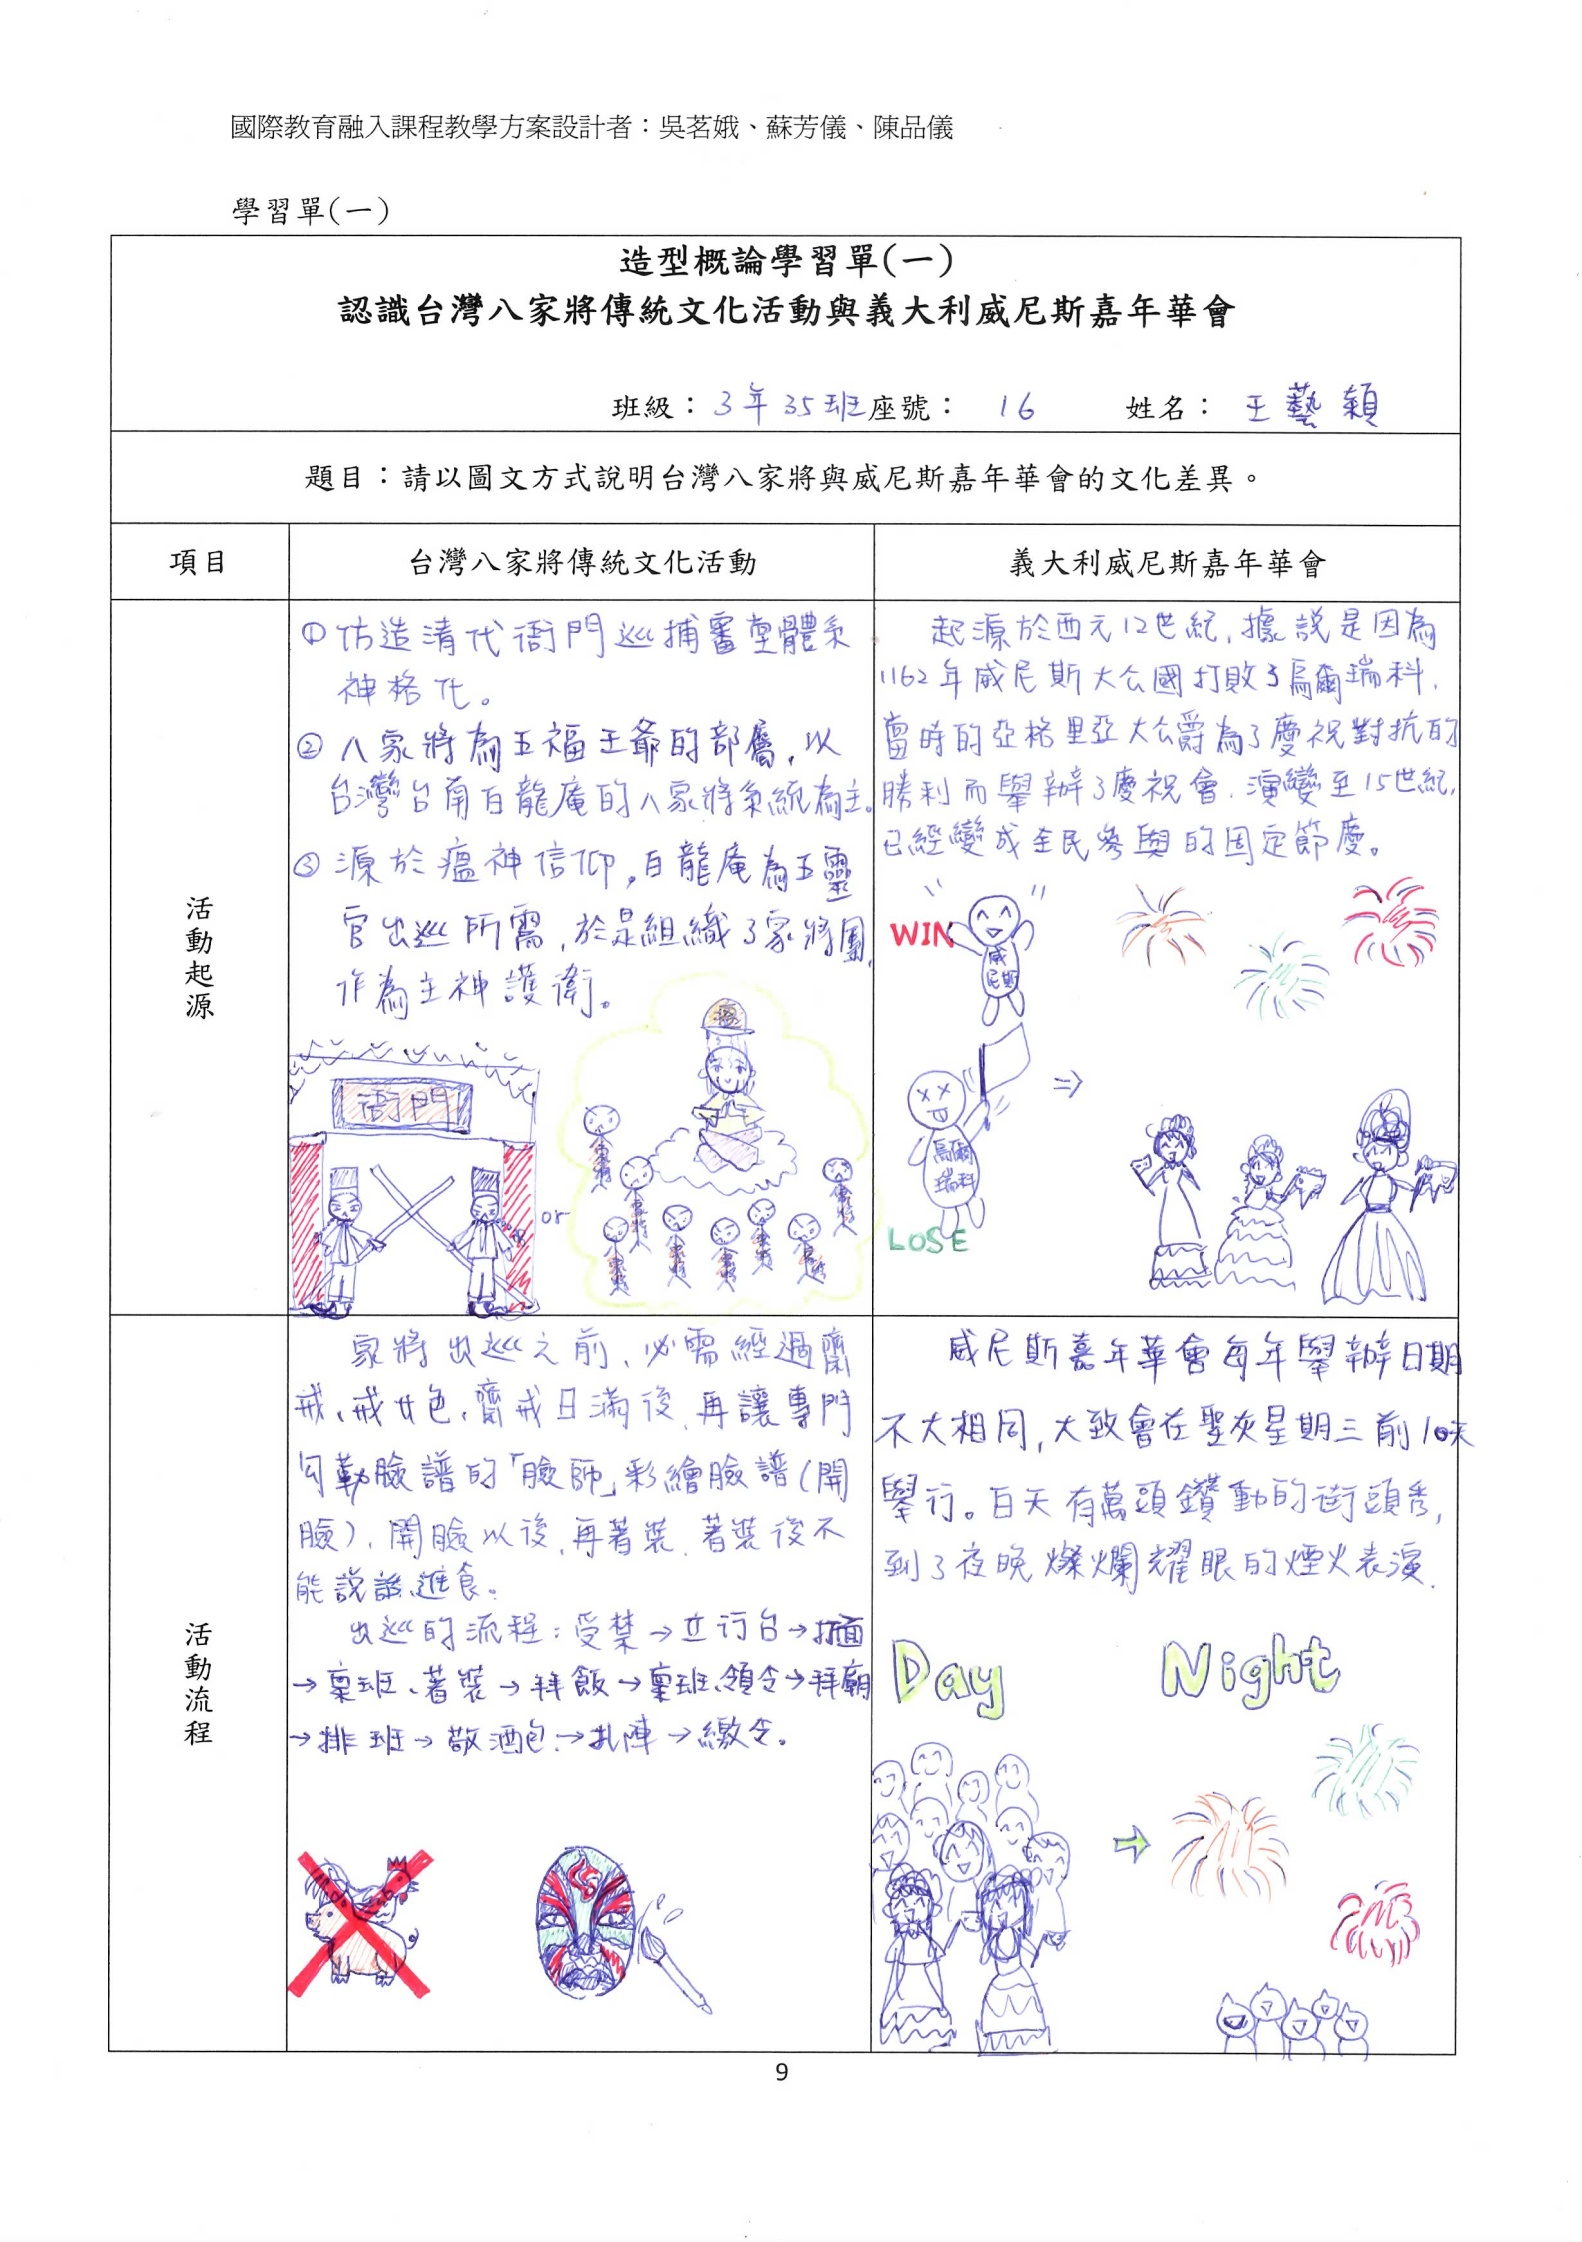 國際教育融入課程教學方案設計者：吳茗娥、蘇芳儀、陳品儀
學習單(一)
造型概論學習單(一)
認識台灣八家將傳統文化活動與義大利威尼斯嘉年華會
班級：3年35班座號： 16 姓名： 王藝穎
題目：請以圖文方式說明台灣八家將與威尼斯嘉年華會的文化差異。
項目
台灣八家將傳統文化活動
義大利威尼斯嘉年華會
活動起源
①仿造清代衙門巡捕審型體系
神格化。
②八家將為五福王爺的部屬，以
台灣台南白龍庵的八家將系統為主。
③源於瘟神信仰，白龍庵為五靈
官出巡所需，於是組織了家將團，
作為主神護衛。
衙門
or
瘟
家將
家將
家將
家將
家將
家將
家將
家將
起源於西元12世紀，據說是因為
1162年威尼斯大公國打敗了烏爾瑞科，
當時的亞格里亞大公爵為了慶祝對抗的
勝利而舉辦了慶祝會，演變至15世紀，
已經變成全民參與的固定節慶。
WIN
威尼斯
烏爾
瑞科
LOSE
活動流程
家將出巡之前，必需經過齋
戒、戒女色，齋戒日滿後，再讓專門
勾勒臉譜的「臉師」彩繪臉譜(開
臉)，開臉以後，再著裝，著裝後不
能說話、進食。
出巡的流程：受禁→立行台→打面
→稟班、著裝→拜飯→稟班、領令→拜廟
→排班→敬酒包→扎陣→繳令。
威尼斯嘉年華會每年舉辦日期
不大相同，大致會在聖灰星期三前10天
舉行。白天有萬頭鑽動的街頭秀，
到了夜晚燦爛耀眼的煙火表演。
Day
Night
9